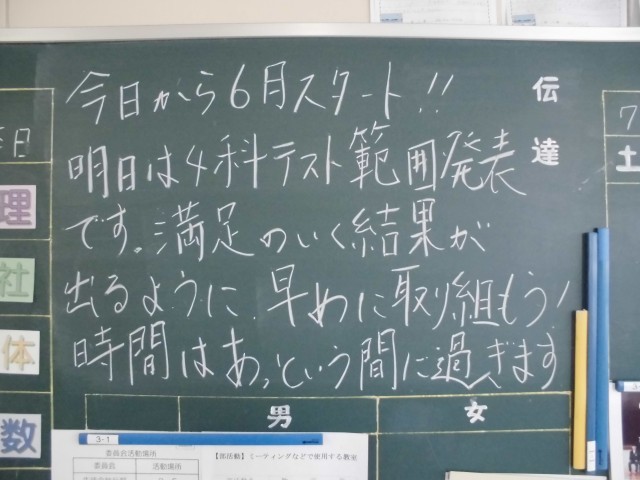 今日から6月スタート!!
明日は4科テスト範囲発表
です。満足のいく結果が
出るように、早めに取り組もう!
時間はあっという間に過ぎます
伝達
日
理
社
体
数
7
土
男
女
3-1
委員会活動場所
委員会
活動場所
【部活動】ミーティングなどで使用する教室